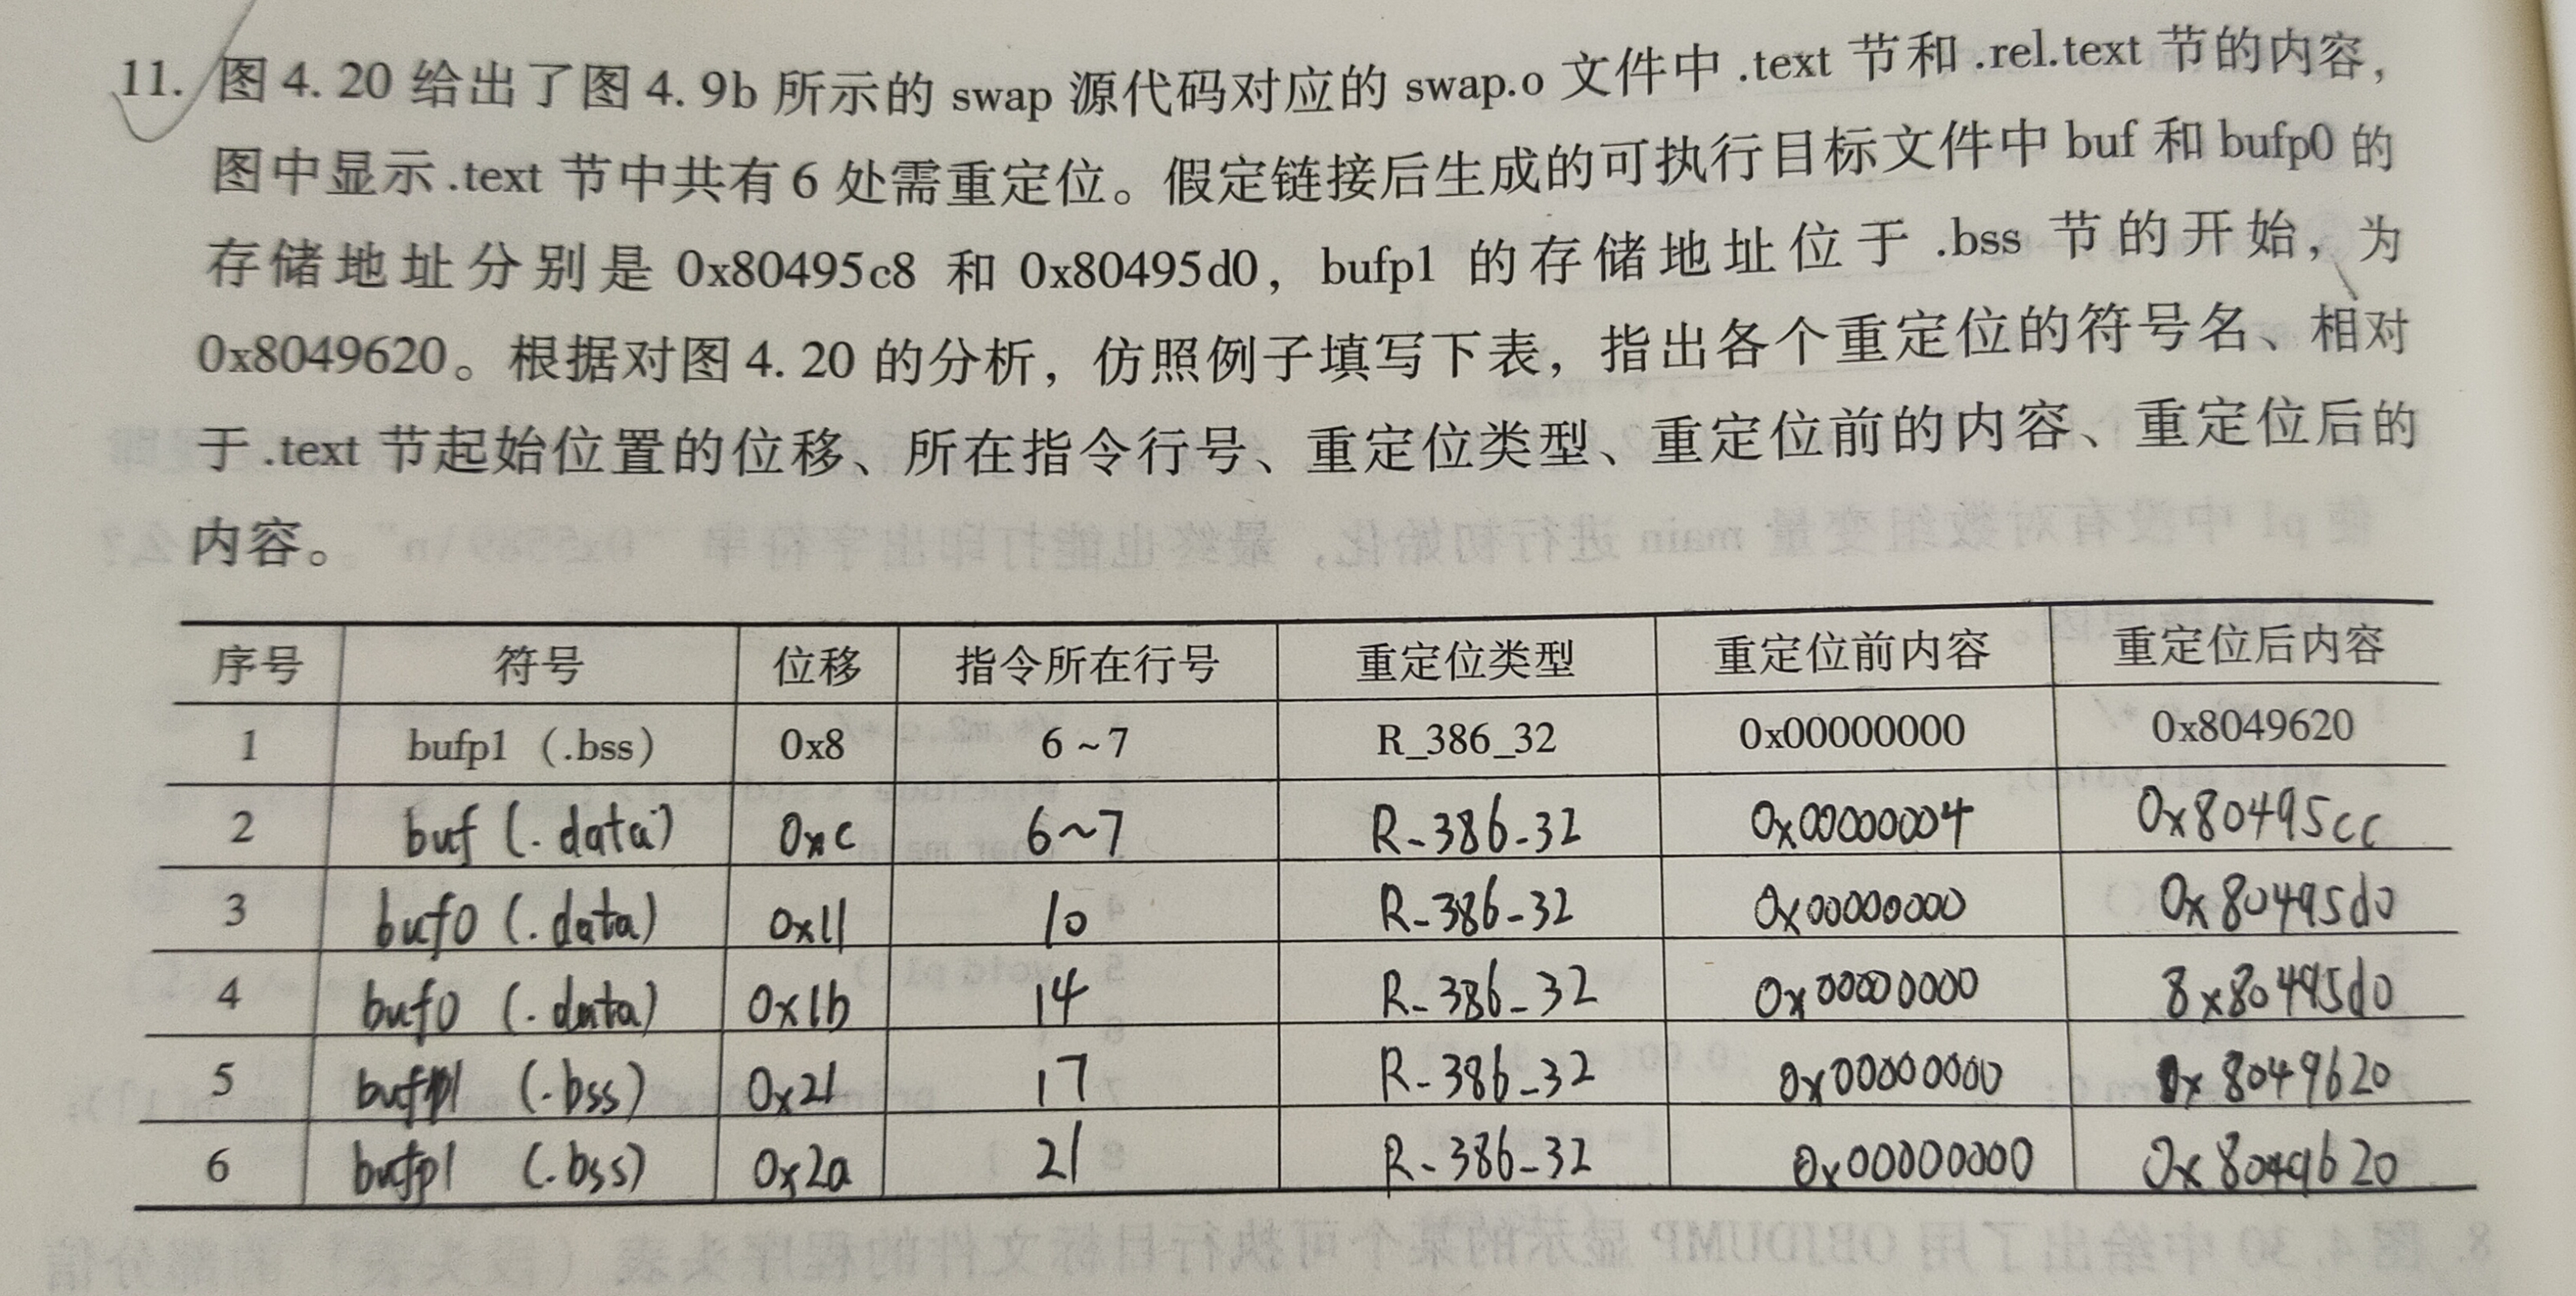 11. 图 4.20 给出了图 4.9b 所示的 swap 源代码对应的 swap.o 文件中 .text 节和 .rel.text 节的内容，
图中显示 .text 节中共有 6 处需重定位。假定链接后生成的可执行目标文件中 buf 和 bufp0 的
存储地址分别是 0x80495c8 和 0x80495d0，bufp1 的存储地址位于 .bss 节的开始，为
0x8049620。根据对图 4.20 的分析，仿照例子填写下表，指出各个重定位的符号名、相对
于 .text 节起始位置的位移、所在指令行号、重定位类型、重定位前的内容、重定位后的
内容。
序号 符号 位移 指令所在行号 重定位类型 重定位前内容 重定位后内容
1 bufp1（.bss） 0x8 6~7 R_386_32 0x00000000 0x8049620
2 buf (.data) 0xc 6~7 R-386-32 0x00000004 0x80495cc
3 buf0 (.data) 0x11 10 R-386-32 0x00000000 0x80495d0
4 buf0 (.data) 0x1b 14 R-386-32 0x00000000 8x80495d0
5 bufp1 (.bss) 0x21 17 R-386-32 0x00000000 0x8049620
6 bufp1 (.bss) 0x2a 21 R-386-32 0x00000000 0x8049620